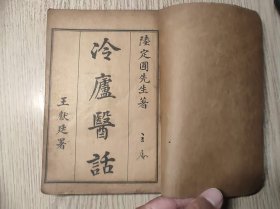 陸定圃先生著
冷廬醫話
王猷廷署